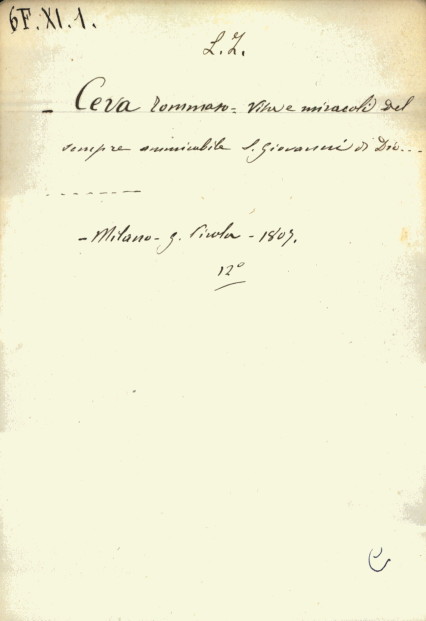 6F.XI.1.
L.Z.
- Ceva Tommaso = Vita e miracoli del
sempre ammirabile S. Giovanni di Dio....
- Milano - G. Pirola - 1807.
12°
C